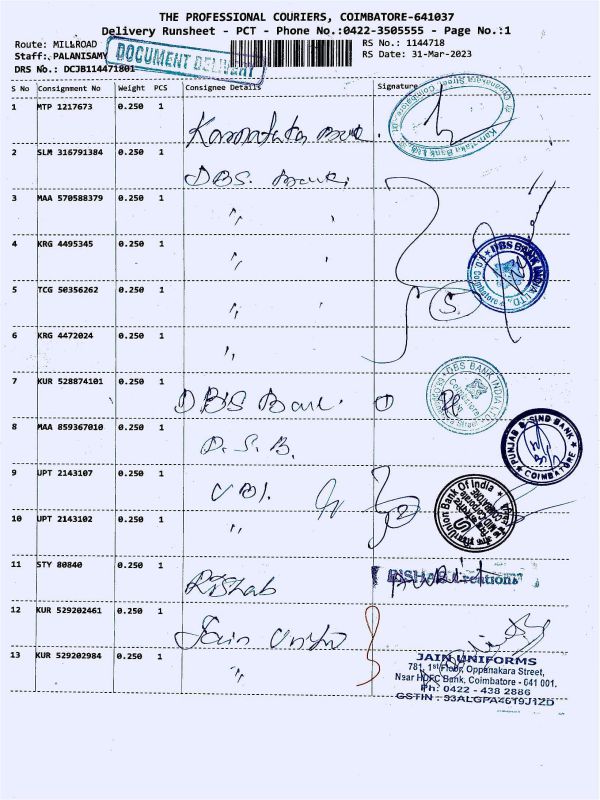 THE PROFESSIONAL COURIERS, COIMBATORE-641037
Delivery Runsheet - PCT - Phone No.:0422-3505555 - Page No.:1
Route: MILLROAD
RS No.: 1144718
Staff: PALANISAMY
RS Date: 31-Mar-2023
DOCUMENT DELIVERY
DRS No.: DCJB114471801
S No Consignment No Weight PCS Consignee Details Signature
1 MTP 1217673 0.250 1 Karnataka Bank
Karnataka Bank Ltd.
Oppanakara Street, Coimbatore
2 SLM 316791384 0.250 1 DBS. Bank
3 MAA 570588379 0.250 1 "
4 KRG 4495345 0.250 1 "
DBS BANK INDIA LTD.
5 TCG 50356262 0.250 1 " 5.
6 KRG 4472024 0.250 1 "
7 KUR 528874101 0.250 1 DBS Bank. 1
DBS BANK INDIA
8 MAA 859367010 0.250 1 P.S.B.
PUNJAB & SIND BANK
COIMBATORE
9 UPT 2143107 0.250 1 UBI.
10 UPT 2143102 0.250 1 " 2
Union Bank Of India
11 STY 80840 0.250 1 Rishab
RISHAB Creations
12 KUR 529202461 0.250 1 Jain Uniform
13 KUR 529202984 0.250 1 "
JAIN UNIFORMS
781, 1st Floor, Oppanakara Street,
Near HDFC Bank, Coimbatore - 641 001.
Ph: 0422 - 438 2886
GSTIN : 33ALGPA4619J1ZD